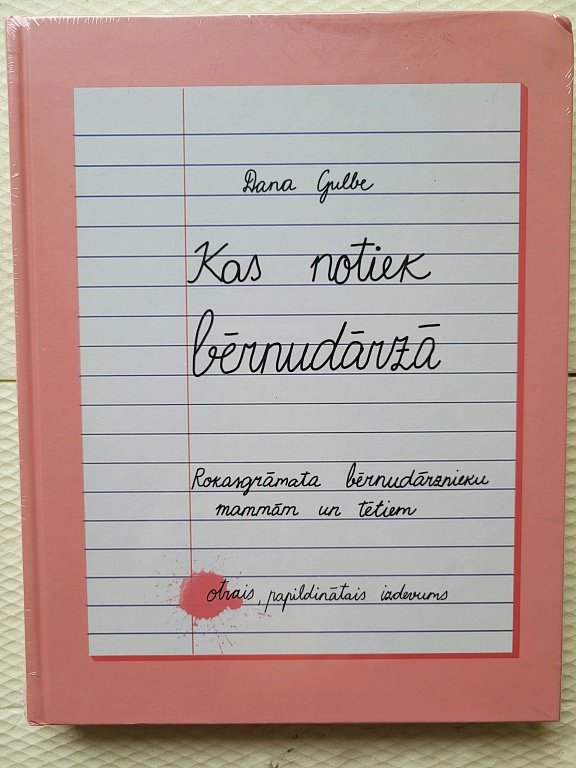 Dana Gulbe
Kas notiek
bērnudārzā
Rokasgrāmata bērnudārznieku
mammām un tētiem
otrais, papildinātais izdevums